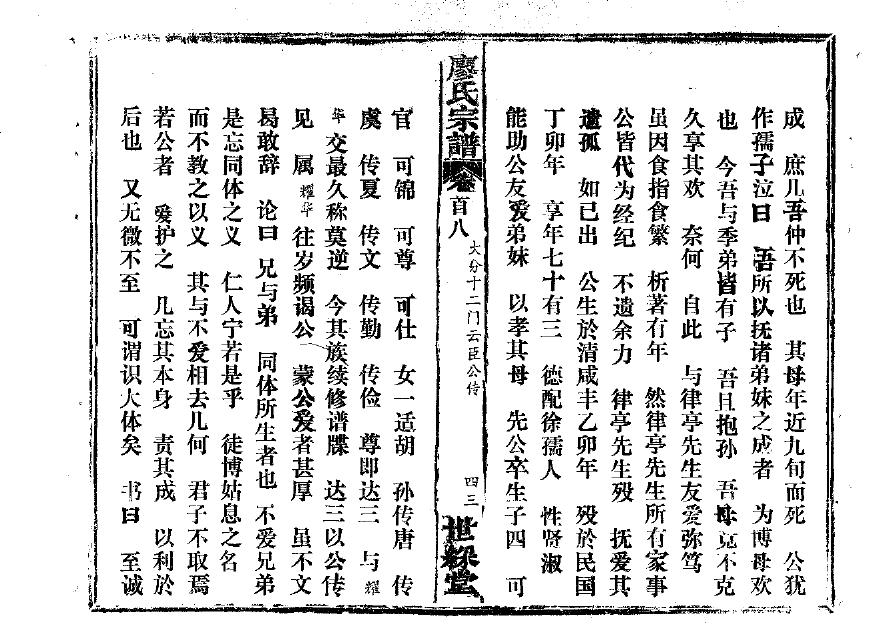 成 庶几吾仲不死也 其母年近九旬而死 公犹
作孺子泣曰 吾所以抚诸弟妹之成者 为博母欢
也 今吾与季弟皆有子 吾且抱孙 吾母竟不克
久享其欢 奈何 自此 与律亭先生友爱弥笃
虽因食指食繁 析著有年 然律亭先生所有家事
公皆代为经纪 不遗余力 律亭先生殁 抚爱其
遗孤 如已出 公生於清咸丰乙卯年 殁於民国
丁卯年 享年七十有三 德配徐孺人 性贤淑
能助公友爱弟妹 以孝其母 先公卒生子四 可
廖氏宗譜 卷首八 大分十二门云臣公传 四三 世綵堂
官 可锦 可尊 可仕 女一适胡 孙传唐 传
虞 传夏 传文 传勤 传俭 尊即达三 与耀
华交最久称莫逆 今其族续修谱牒 达三以公传
见属 耀华往岁频谒公 蒙公爱者甚厚 虽不文
曷敢辞 论曰 兄与弟 同体所生者也 不爱兄弟
是忘同体之义 仁人宁若是乎 徒博姑息之名
而不教之以义 其与不爱相去几何 君子不取焉
若公者 爱护之 几忘其本身 责其成 以利於
后也 又无微不至 可谓识大体矣 书曰 至诚